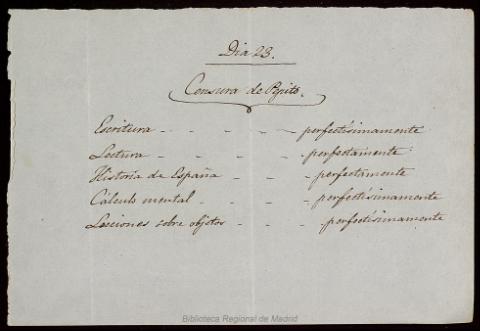 Dia 23.
Censura de Pepito.
Escritura - - - - - perfectísimamente
Lectura - - - - perfectamente
Historia de España - - - perfectamente
Cálculo mental - - - perfectísimamente
Lecciones sobre objetos - - - perfectísimamente
Biblioteca Regional de Madrid